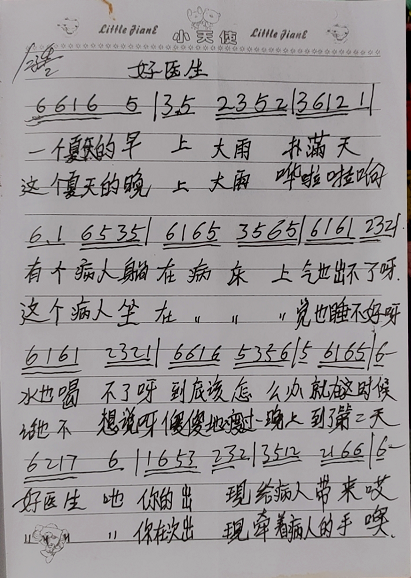 Little Jiank 小天使 Little Jiank
好医生
6 6 1 6 5 | 3.5 2 3 5 2 | 3 6 1 2 1 |
一个夏天的早 上 大雨 扑满天
这个夏天的晚 上 大雨 哗啦啦啦响
6.1 6535 | 6165 3565 | 6161 2321
有个病人躺在病床 上 气也出不了呀.
这个病人坐在 〃 〃 〃 觉也睡不好呀
6161 2321 | 6616 5356 | 5 6165 | 6-
水也喝 不了呀 到底该怎 么办 就在这时候
话也不 想说呀 傻傻地 一晚上 到了第二天
6217 6 | 1653 232 | 3512 2166 | 6-
好医生 他 你的出 现给病人带来哎
〃 你在次出 现牵着病人的手 噢